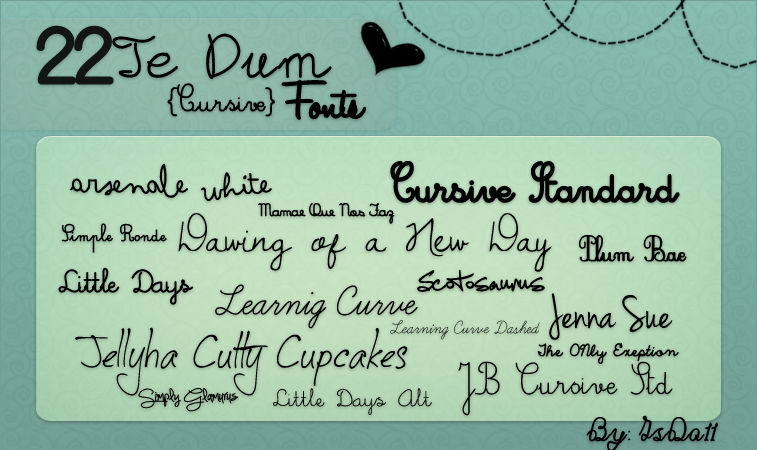 22 Te Dum
{Cursive} Fonts
arsenale white
Cursive Standard
Mamae Que Nos Faz
Simple Ronde
Dawing of a New Day
Plum Bae
Little Days
Scotosaurus
Learnig Curve
Learning Curve Dashed
Jenna Sue
Jellyha Cutty Cupcakes
The ONly Exeption
Simply Glamorus
Little Days Alt
JB Cursive Std
By: IsDa11